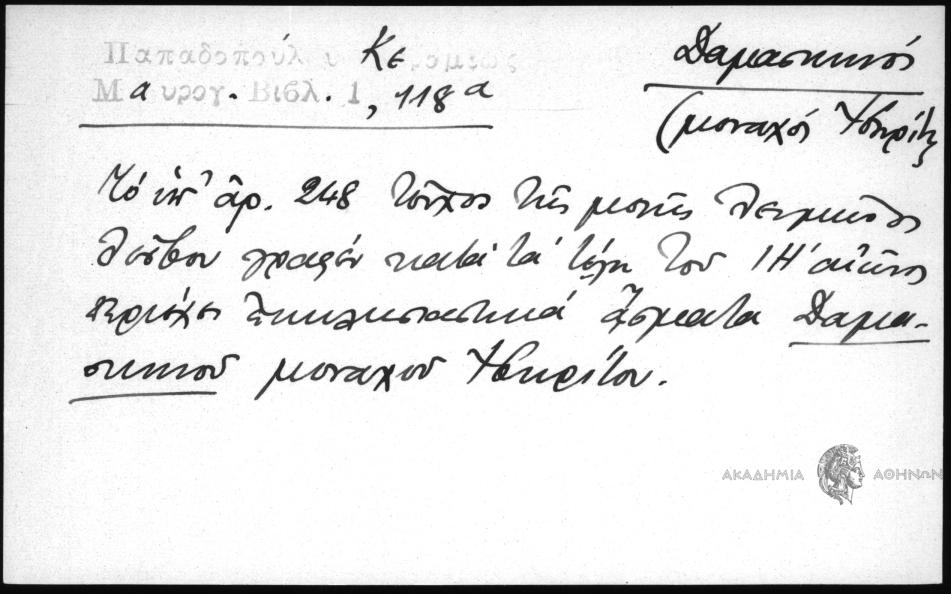 Παπαδοπούλου Κεραμέως
Μαυρογ. Βιβλ. 1, 118α
Δαμασκηνός
(μοναχός Ἰβηρίτης
Τό ὑπ' ἄρ. 248 τεῦχος τῆς μονῆς Λειμῶνος
Λέσβου γραφέν κατά τά τέλη τοῦ ΙΗ' αἰῶνος
περιέχει ἐκκλησιαστικά ᾄσματα Δαμα-
σκηνοῦ μοναχοῦ Ἰβηρίτου.
ΑΚΑΔΗΜΙΑ ΑΘΗΝΩΝ